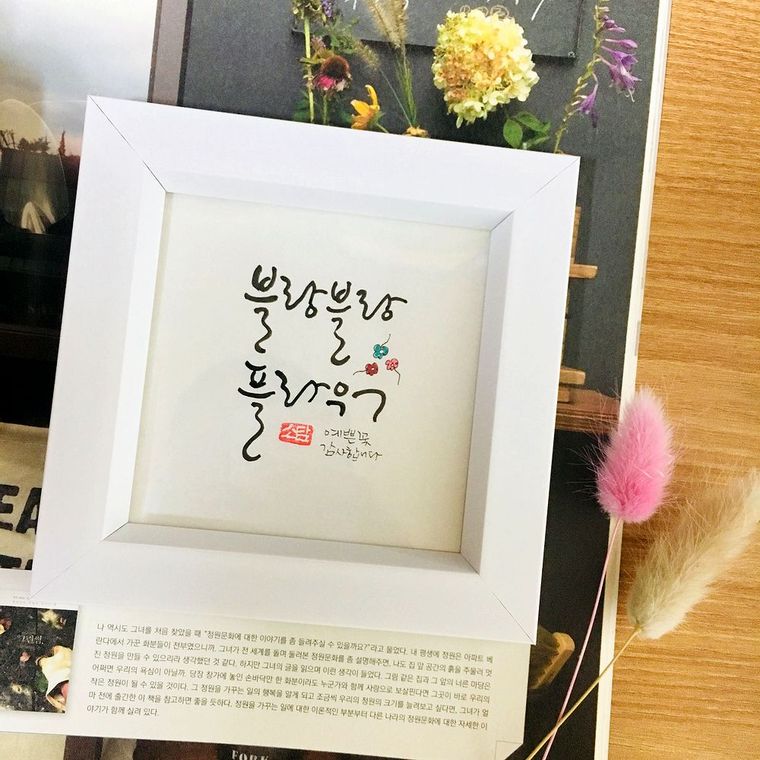 블랑블랑
플라워
소담
예쁜꽃
감사합니다
나 역시도 그녀를 처음 찾았을 때 "정원문화에 대한 이야기를 좀 들려주실 수 있을까요?"라고 물었다. 내 평생에 정원은 아파트 베
란다에서 가꾼 화분들이 전부였으니까. 그녀가 전 세계를 돌며 둘러본 정원문화를 좀 설명해주면, 나도 집 앞 공간의 흙을 주물러 멋
진 정원을 만들 수 있으리라 생각했던 것 같다. 하지만 그녀의 글을 읽으며 이런 생각이 들었다. 그림 같은 집과 그 앞의 너른 마당은
어쩌면 우리의 욕심이 아닐까. 당장 창가에 놓인 손바닥만 한 화분이라도 누군가와 함께 사랑으로 보살핀다면 그곳이 바로 우리의
작은 정원이 될 수 있을 것이다. 그 정원을 가꾸는 일의 행복을 알게 되고 조금씩 우리의 정원의 크기를 늘려보고 싶다면, 그녀가 얼
마 전에 출간한 이 책을 참고하면 좋을 듯하다. 정원을 가꾸는 일에 대한 이론적인 부분부터 다른 나라의 정원문화에 대한 자세한 이
야기가 함께 실려 있다.
FORK